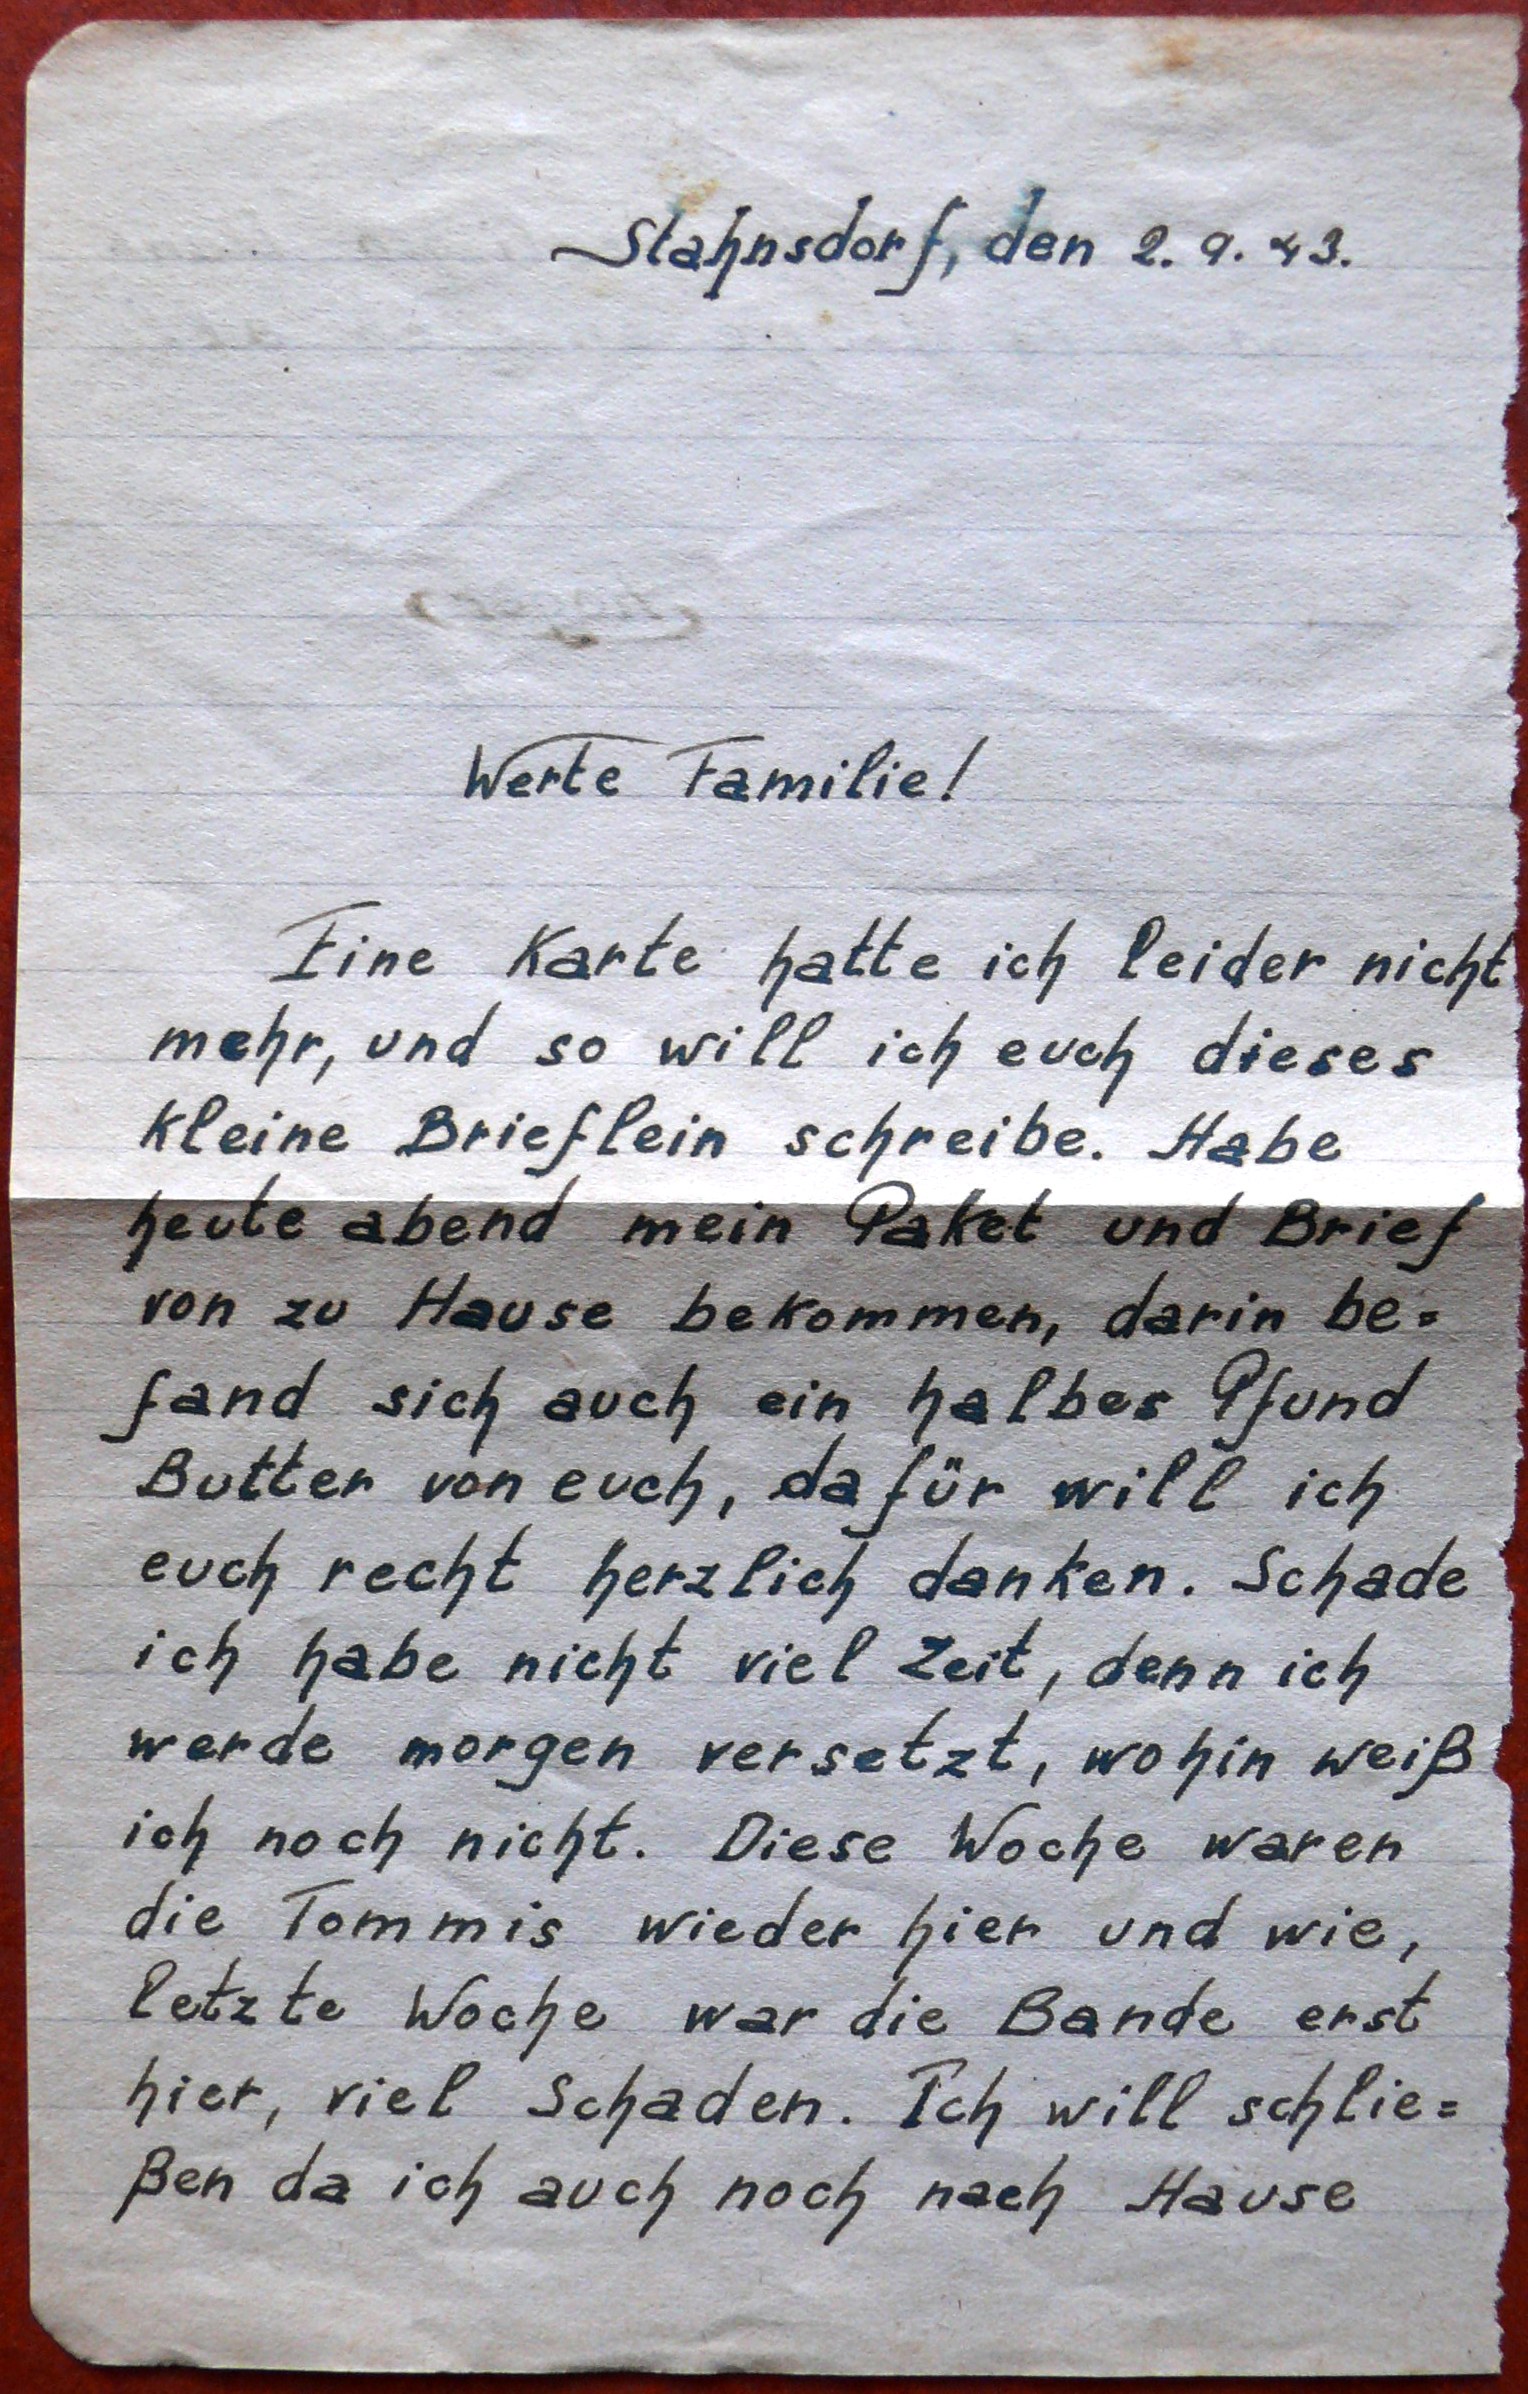 Stahnsdorf, den 2. 9. 43.
Werte Familie!
Eine Karte hatte ich leider nicht
mehr, und so will ich euch dieses
kleine Brieflein schreibe. Habe
heute abend mein Paket und Brief
von zu Hause bekommen, darin be=
fand sich auch ein halbes Pfund
Butter von euch, dafür will ich
euch recht herzlich danken. Schade
ich habe nicht viel Zeit, denn ich
werde morgen versetzt, wohin weiß
ich noch nicht. Diese Woche waren
die Tommis wieder hier und wie,
letzte Woche war die Bande erst
hier, viel Schaden. Ich will schlie=
ßen da ich auch noch nach Hause